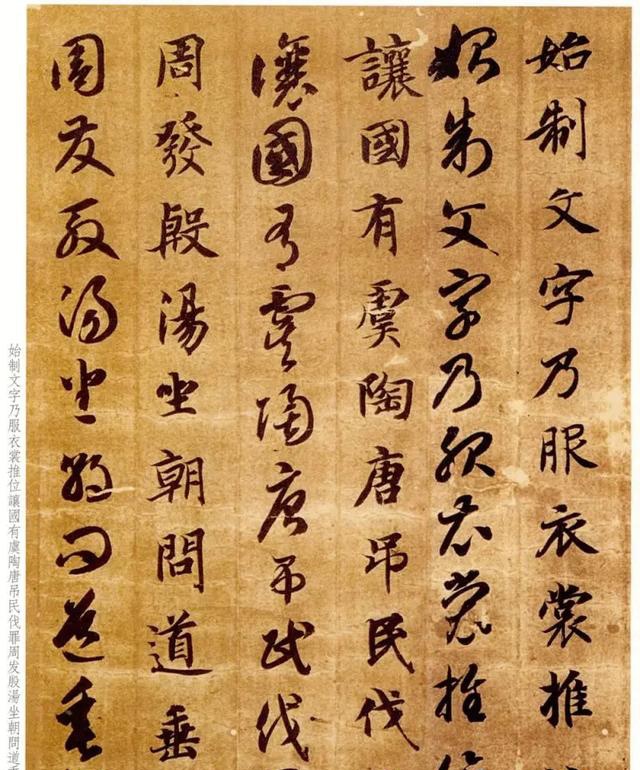 始制文字乃服衣裳推
始制文字乃服衣裳推
讓國有虞陶唐吊民伐
讓國有虞陶唐吊民伐
周發殷湯坐朝問道垂
周發殷湯坐朝問道垂
始制文字乃服衣裳推位讓國有虞陶唐吊民伐罪周发殷湯坐朝問道